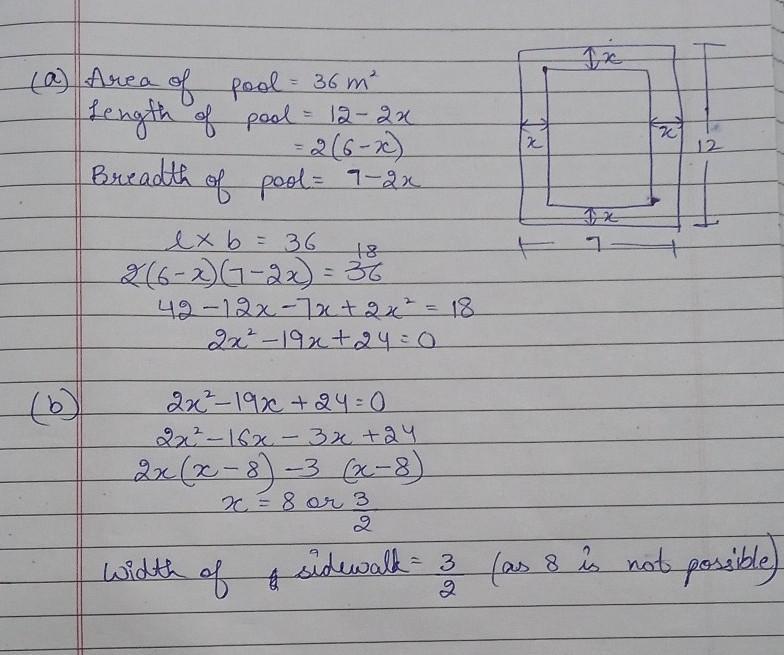 (a) Area of pool = 36 m²
Length of pool = 12 - 2x
= 2(6-x)
Breadth of pool = 7-2x
x
x
x
12
x
7
l × b = 36
18
2(6-x)(7-2x) = 36
42 - 12x - 7x + 2x² = 18
2x² - 19x + 24 = 0
(b) 2x² - 19x + 24 = 0
2x² - 16x - 3x + 24
2x(x-8) - 3 (x-8)
x = 8 or 3/2
Width of sidewalk = 3/2 (as 8 is not possible)